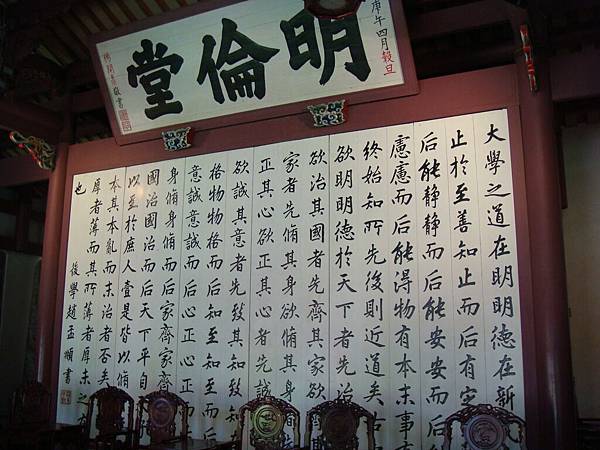 庚午四月穀旦
明倫堂
敬書
大學之道在明明德在新民
止於至善知止而后有定
后能靜靜而后能安安而后
慮慮而后能得物有本末事有
終始知所先後則近道矣
欲明明德於天下者先治
欲治其國者先齊其家欲
家者先脩其身欲脩其身
正其心欲正其心者先誠
欲誠其意者先致其知致知
格物物格而后知至知至而后
意誠意誠而后心正心正
身脩身脩而后家齊家齊
國治國治而后天下平自
以至於庶人壹是皆以脩
本其本亂而末治者否矣
厚者薄而其所薄者厚未之
也
後學趙孟頫書